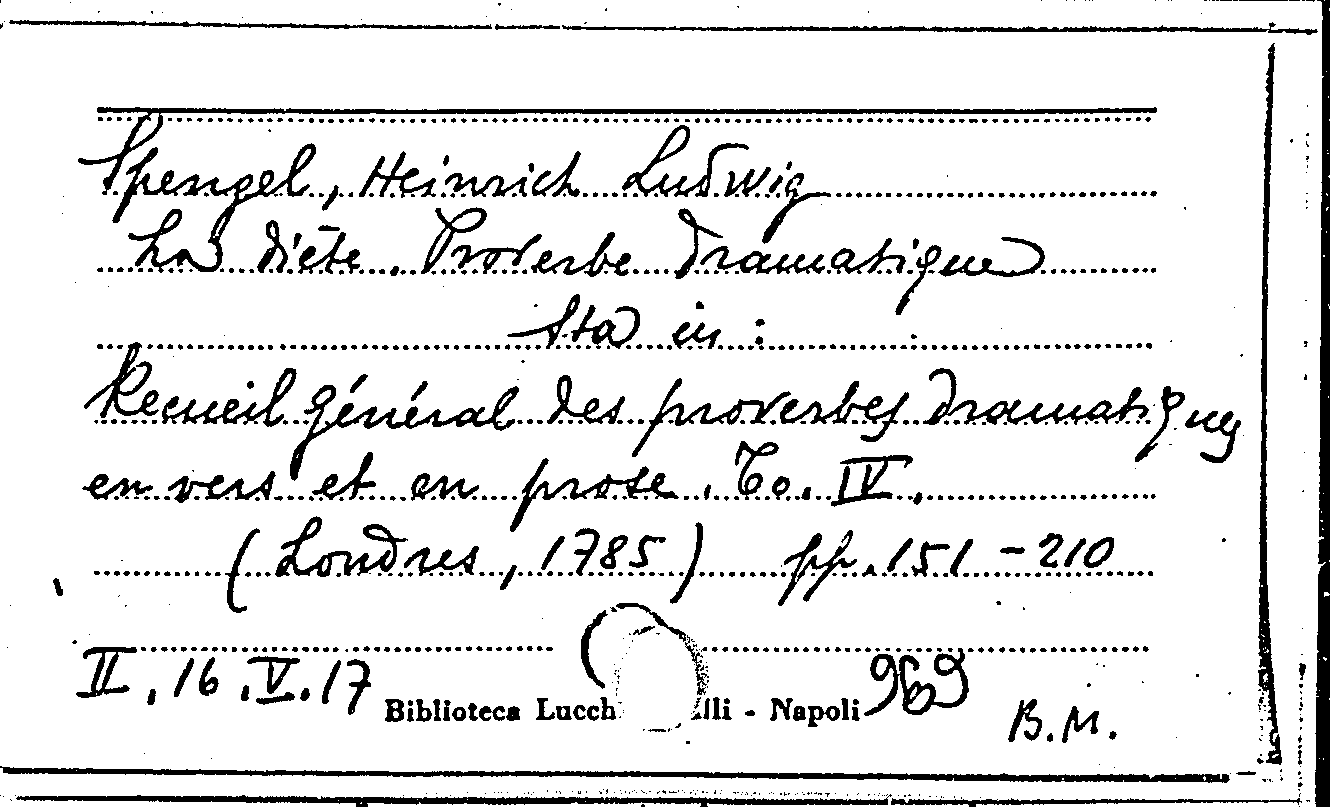 Spengel, Heinrich Ludwig
La diète. Proverbe dramatique
Sta in:
Recueil général des proverbes dramatiques
en vers et en prose. To. IV.
(Londres, 1785) pp. 151-210
II. 16. V. 17
Biblioteca Lucch lli - Napoli 969
B. M.